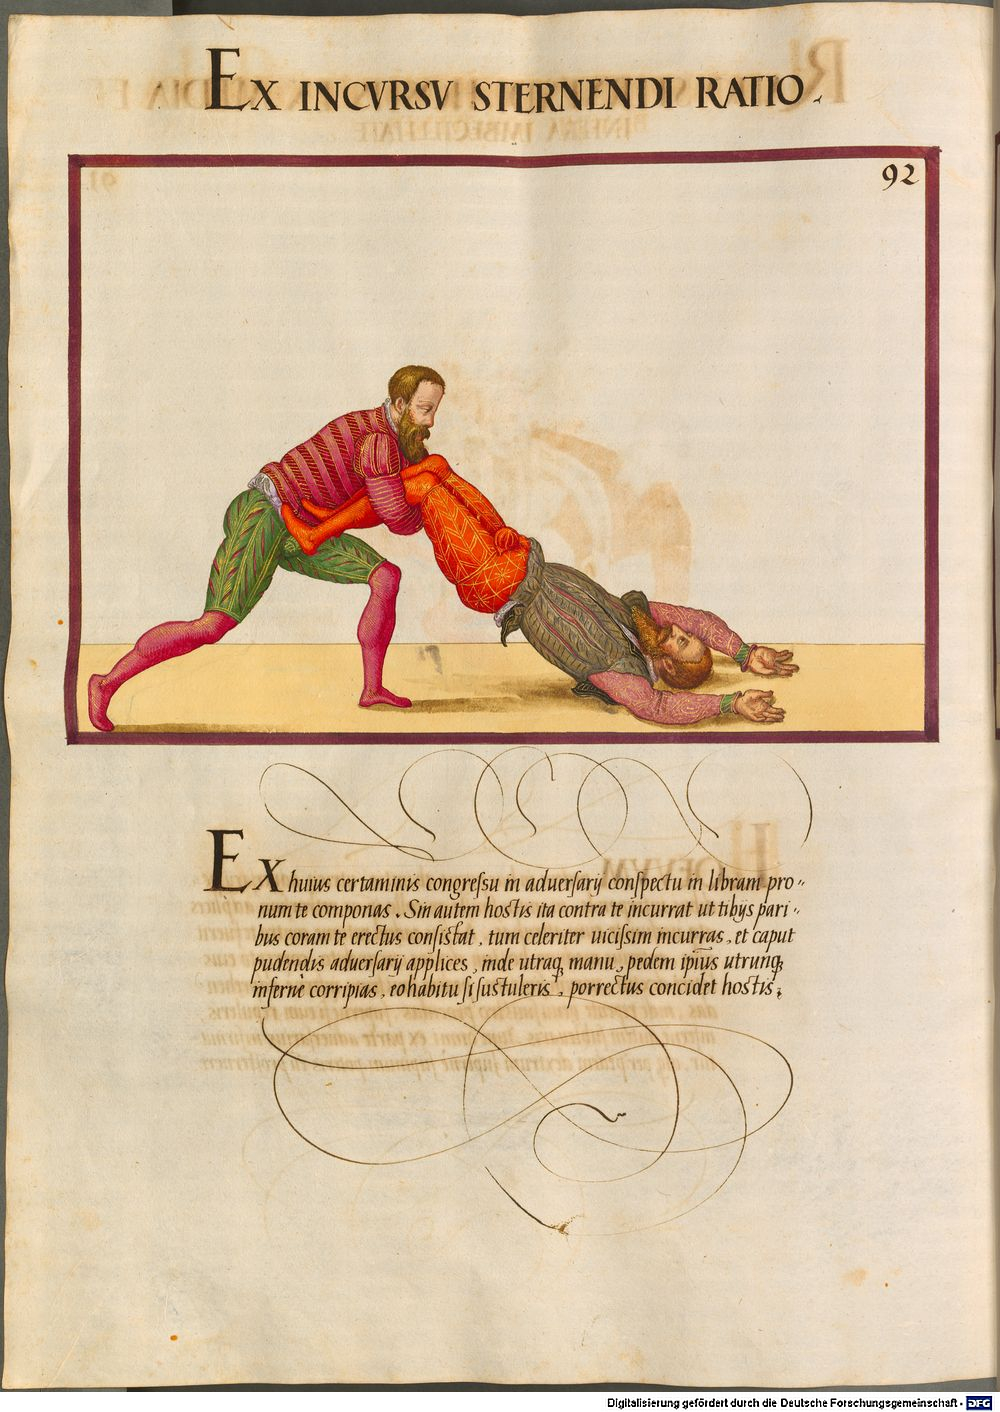 EX INCVRSV STERNENDI RATIO.
92
EX huius certaminis congreſsu in aduerſarij conſpectu in libram pro=
num te componas. Sin autem hostis ita contra te incurrat ut tibijs pari=
bus coram te erectus conſistat, tum celeriter uicissim incurras, et caput
pudendis aduerſarij applices, inde utraq, manu, pedem ipius utrunq,
infernè corripias, eo habitu ſi ſustuleris, porrectus concidet hostis;
Digitalisierung gefördert durch die Deutsche Forschungsgemeinschaft - DFG